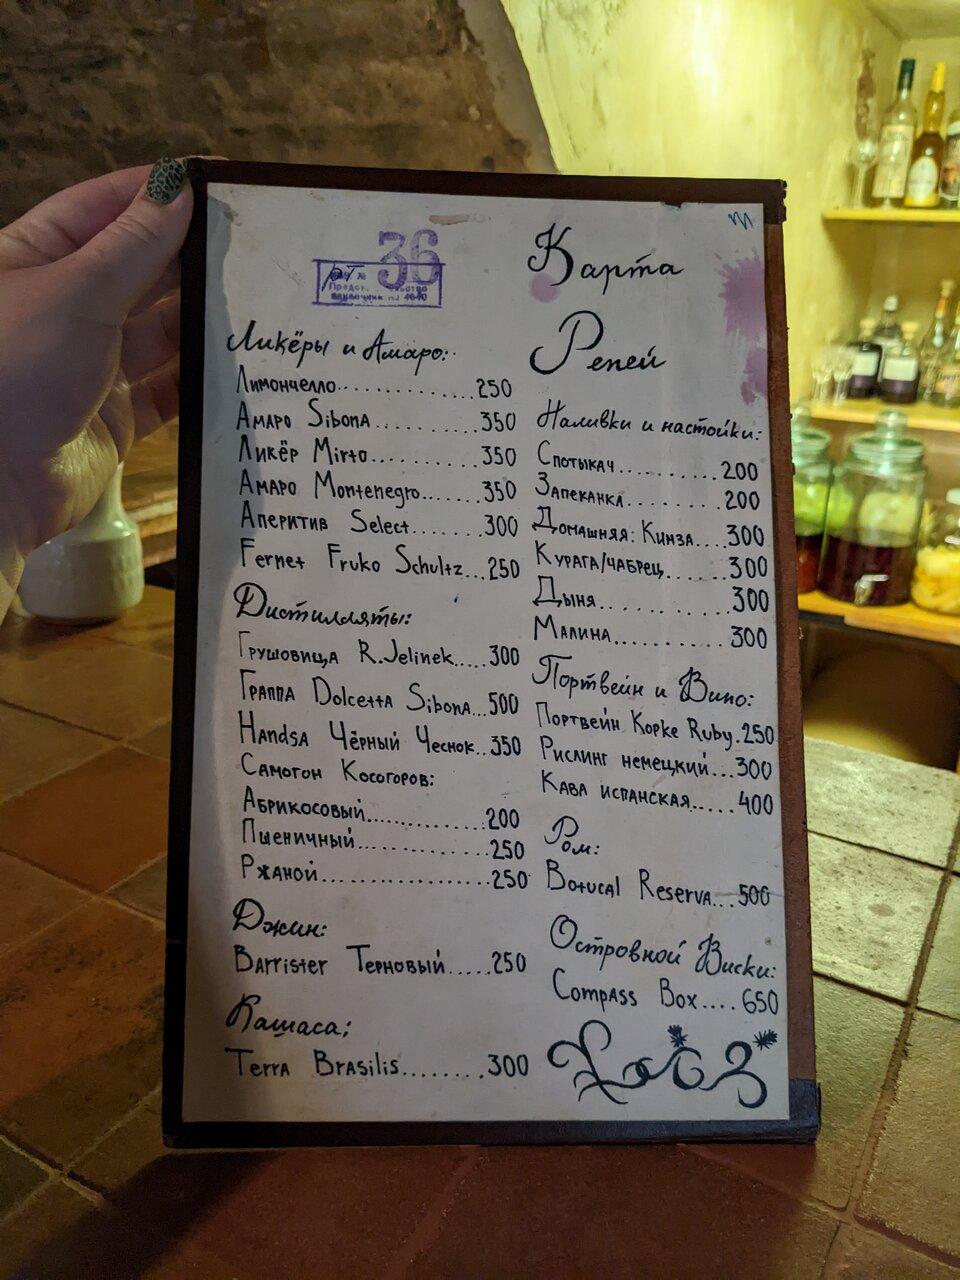 36
Карта
Репей
Ликёры и Амаро:
Лимончелло...........250
Амаро Sibona.........350
Ликёр Mirto..........350
Амаро Montenegro......350
Аперитив Select.......300
Fernet Fruko Schultz...250
Дистилляты:
Грушовица R.Jelinek.....300
Граппа Dolcetta Sibona...500
Handsa Чёрный Чеснок..350
Самогон Косогоров:
Абрикосовый.............200
Пшеничный..............250
Ржаной..................250
Джин:
Barrister Терновый.....250
Кашаса:
Terra Brasilis........300
Наливки и настойки:
Спотыкач..........200
Запеканка.........200
Домашняя: Кинза....300
Курага/чабрец.......300
Дыня...........300
Малина..........300
Портвейн и Вино:
Портвейн Kopke Ruby.250
Рислинг немецкий...300
Кава испанская.....400
Ром:
Botucal Reserva...500
Островной Виски:
Compass Box....650